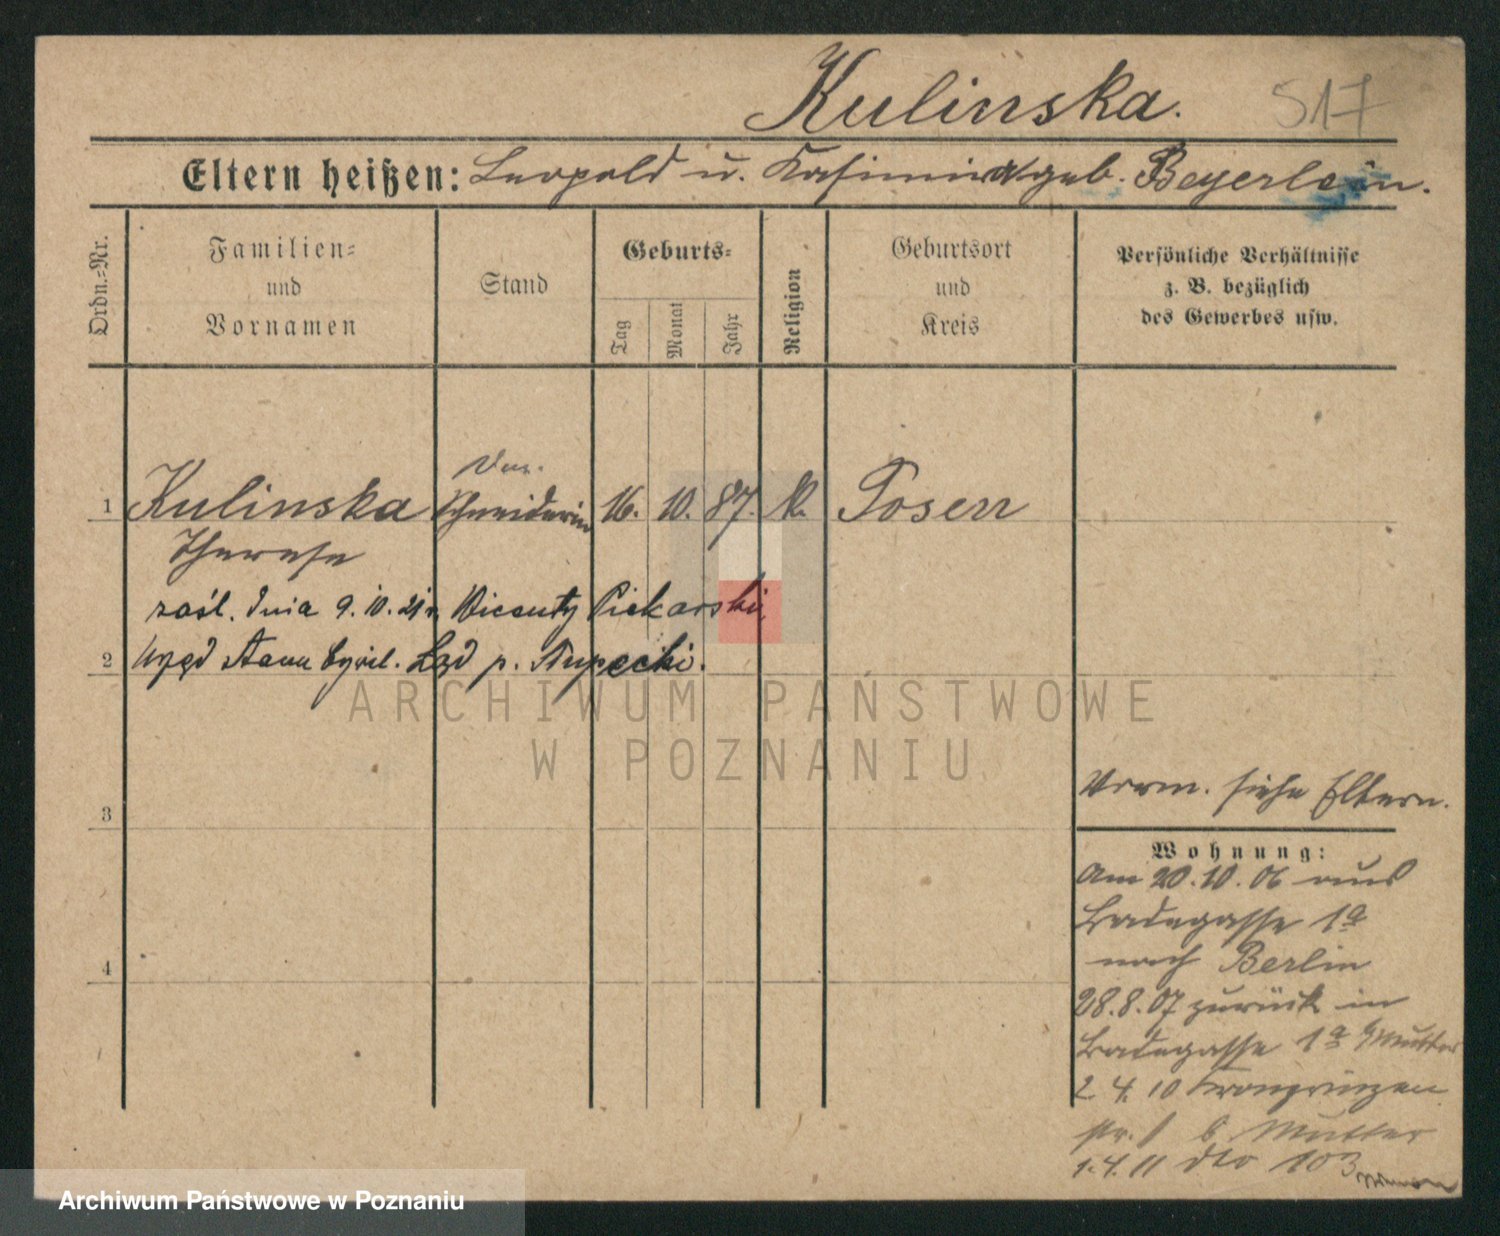 Kulinska.
517
Eltern heißen: Leopold u. Kasimira geb. Beyerlein.
Ordn.-Nr.
Familien-
und
Vornamen
Stand
Geburts-
Tag
Monat
Jahr
Religion
Geburtsort
und
Kreis
Persönliche Verhältnisse
z. B. bezüglich
des Gewerbes usw.
1 Kulinska Schneiderin 16. 10. 87. k. Posen
Therese
zaśl. dnia 9. 10. 21 r. Wicenty Piekarski,
2 Urząd Stanu Cywil. Ląd p. Słupecki.
ARCHIWUM PAŃSTWOWE
W POZNANIU
Vorm. siehe Eltern.
3
Wohnung:
Am 20.10.06 aus
Badegasse 1a
nach Berlin
4
28.8.07 zurück in
Badegasse 1a b Mutter
2 4. 10 Kronprinzen
str. 1 b Mutter
1.4.11 dto 103
Archiwum Państwowe w Poznaniu